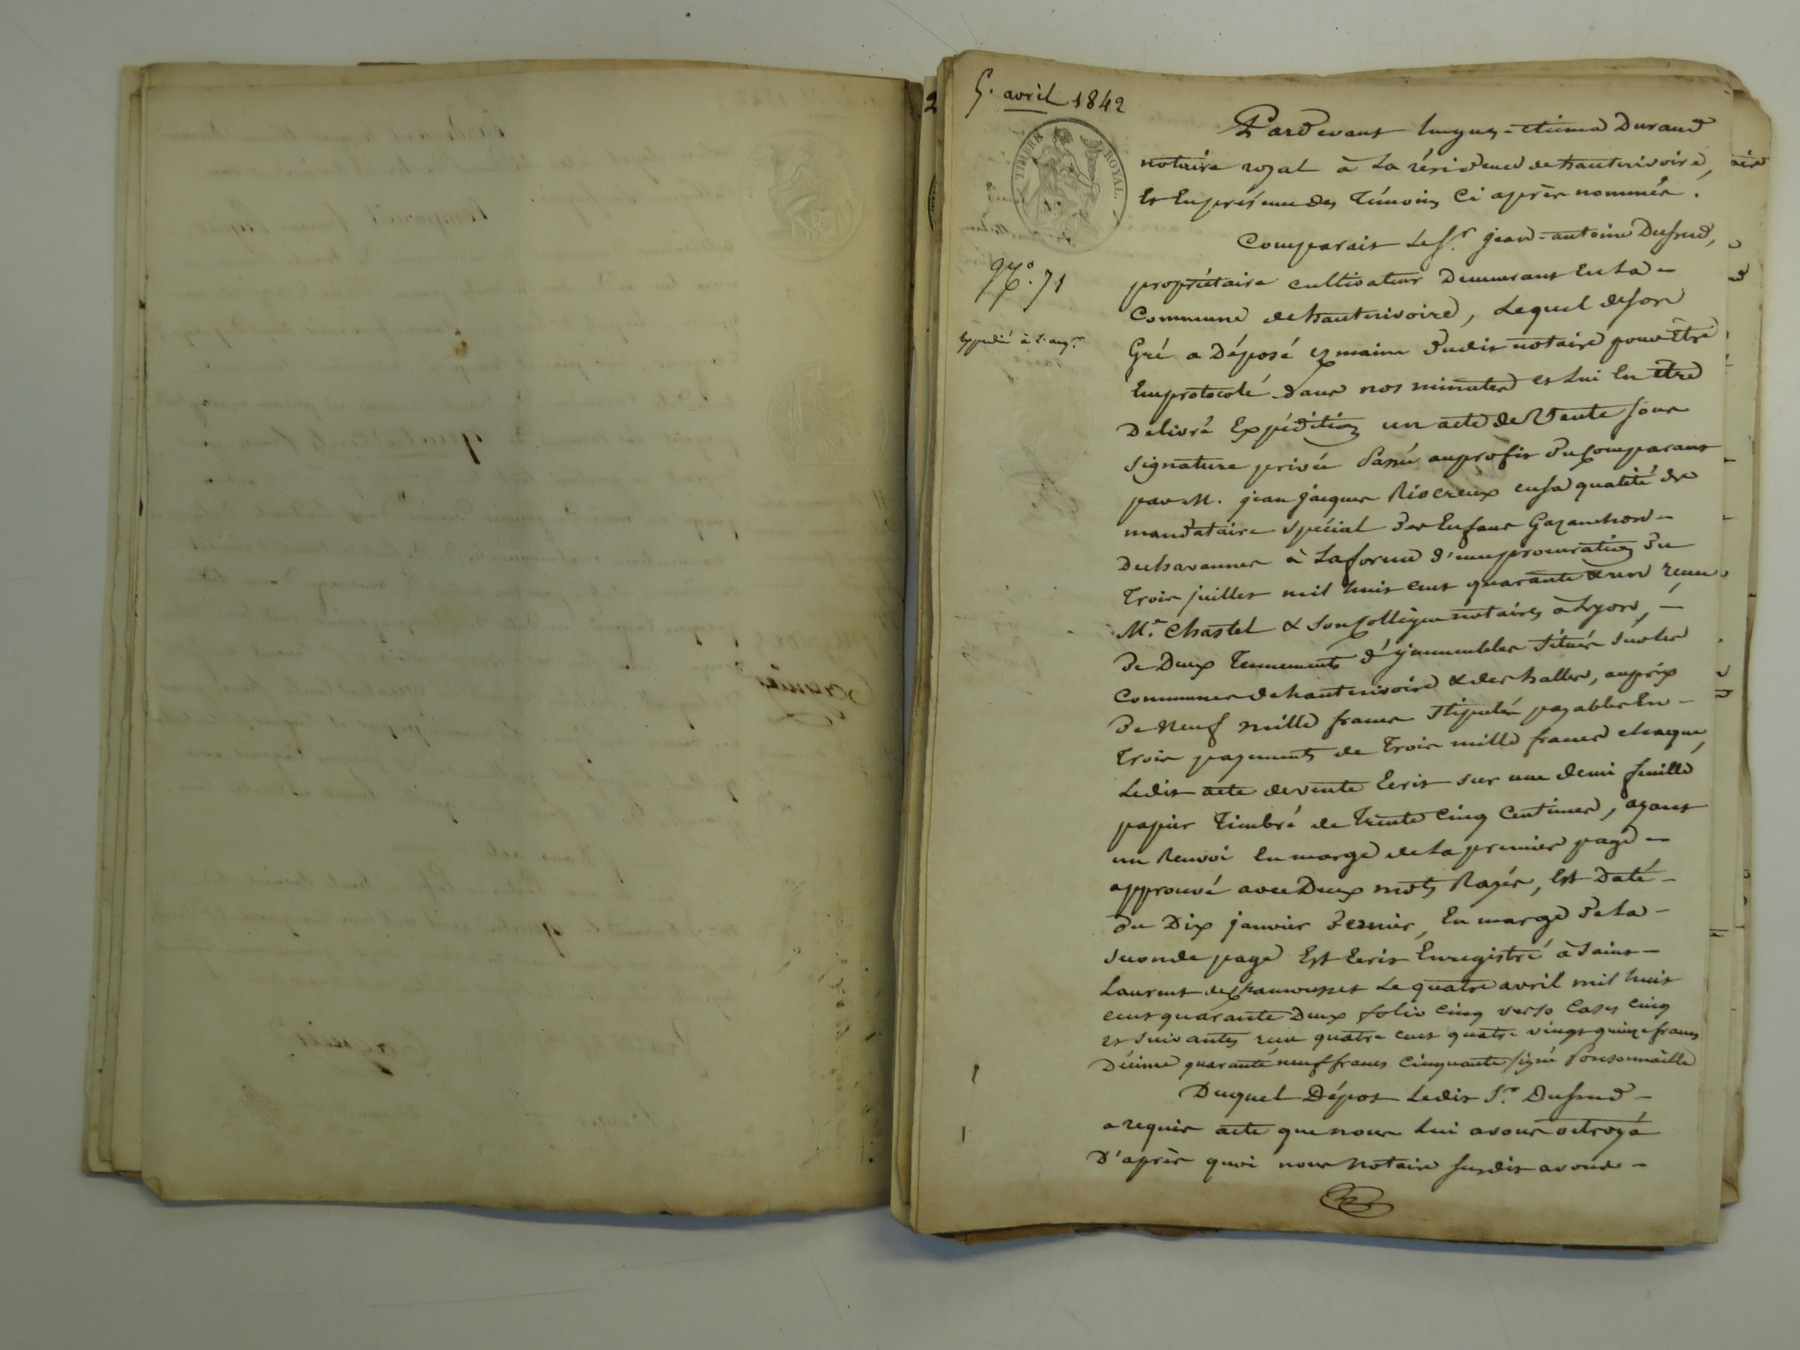 5. avril 1842
TIMBRE ROYAL
Pardevant hugues-étienne Durand
notaire royal à La résidence de hauterivoire,
Et En présence des Témoins Ci après nommés.
Comparait Le Sr. jean-antoine Dusfud,
No. 71
propriétaire cultivateur Demeurant En La -
Commune de hauterivoire, Lequel de son
Expédié à l'acqr.
Gré a Déposé ez mains dudit notaire pour être
Emprotocolé dans nos minutes et Lui En être
Délivré Expédition un acte de Vente sous
signature privée Passé au profit du Comparant
par M. jean jacques Riocreux en sa qualité de
mandataire spécial des Enfans Gazanchon -
Duchavannes à La forme d'une procuration du
Trois juillet mil huit cent quarante & un reçue
Me. Chastel & son Collègue notaires à Lyon, -
de Deux Tennements d'ymmeubles situés sur les
Communes de hauterivoire & des halles, au prix
de Neuf mille francs stipulés payables En -
Trois payements de Trois mille francs chaque,
Ledit acte de vente Ecrit sur une demi feuille
papier Timbré de Trente Cinq Centimes, ayant
un Renvoi En marge de La première page -
approuvé avec Deux mots Rayés, Est Daté -
du Dix janvier dernier, En marge de La -
seconde page Est Ecrit Enregistré à Saint -
Laurent de Chamousset Le quatre avril mil huit
cent quarante Deux folio Cinq verso Cases Cinq
et suivantes reçu quatre cent quatre vingt quinze francs
Décime quarante neuf francs Cinquante signé Ponsonnaille
Duquel Dépot Ledit Sr. Dusfud -
a requis acte que nous Lui avons octroyé
D'après quoi nous Notaire susdit avons -